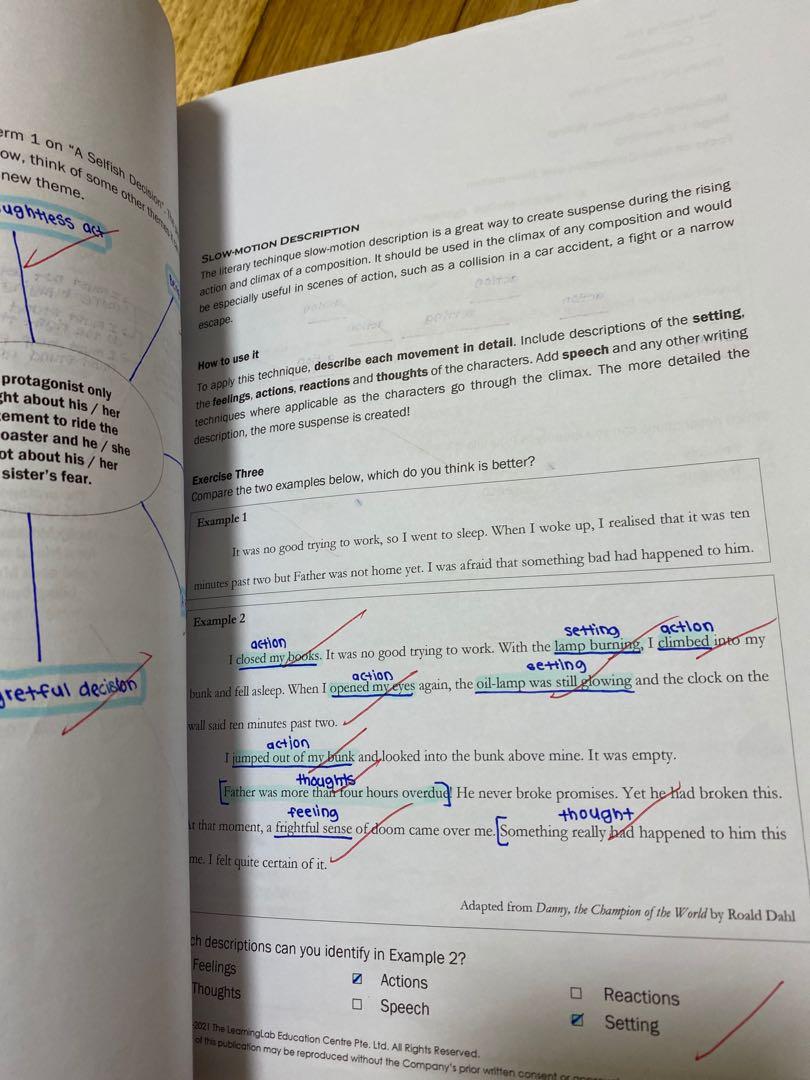 erm 1 on "A Selfish Decision".
ow, think of some other themes
new theme.
ughtless act
protagonist only
ght about his / her
ement to ride the
oaster and he / she
ot about his / her
sister's fear.
gretful decision
SLOW-MOTION DESCRIPTION
The literary techinque slow-motion description is a great way to create suspense during the rising
action and climax of a composition. It should be used in the climax of any composition and would
be especially useful in scenes of action, such as a collision in a car accident, a fight or a narrow
escape.
How to use it
To apply this technique, describe each movement in detail. Include descriptions of the setting,
the feelings, actions, reactions and thoughts of the characters. Add speech and any other writing
techniques where applicable as the characters go through the climax. The more detailed the
description, the more suspense is created!
Exercise Three
Compare the two examples below, which do you think is better?
Example 1
It was no good trying to work, so I went to sleep. When I woke up, I realised that it was ten
minutes past two but Father was not home yet. I was afraid that something bad had happened to him.
Example 2
action setting action
I closed my books. It was no good trying to work. With the lamp burning, I climbed into my
action setting
bunk and fell asleep. When I opened my eyes again, the oil-lamp was still glowing and the clock on the
wall said ten minutes past two.
action
I jumped out of my bunk and looked into the bunk above mine. It was empty.
thoughts
Father was more than four hours overdue! He never broke promises. Yet he had broken this.
feeling thought
At that moment, a frightful sense of doom came over me. Something really bad happened to him this
me. I felt quite certain of it.
Adapted from Danny, the Champion of the World by Roald Dahl
ch descriptions can you identify in Example 2?
Feelings Actions Reactions
Thoughts Speech Setting
2021 The LearningLab Education Centre Pte. Ltd. All Rights Reserved.
of this publication may be reproduced without the Company's prior written consent or